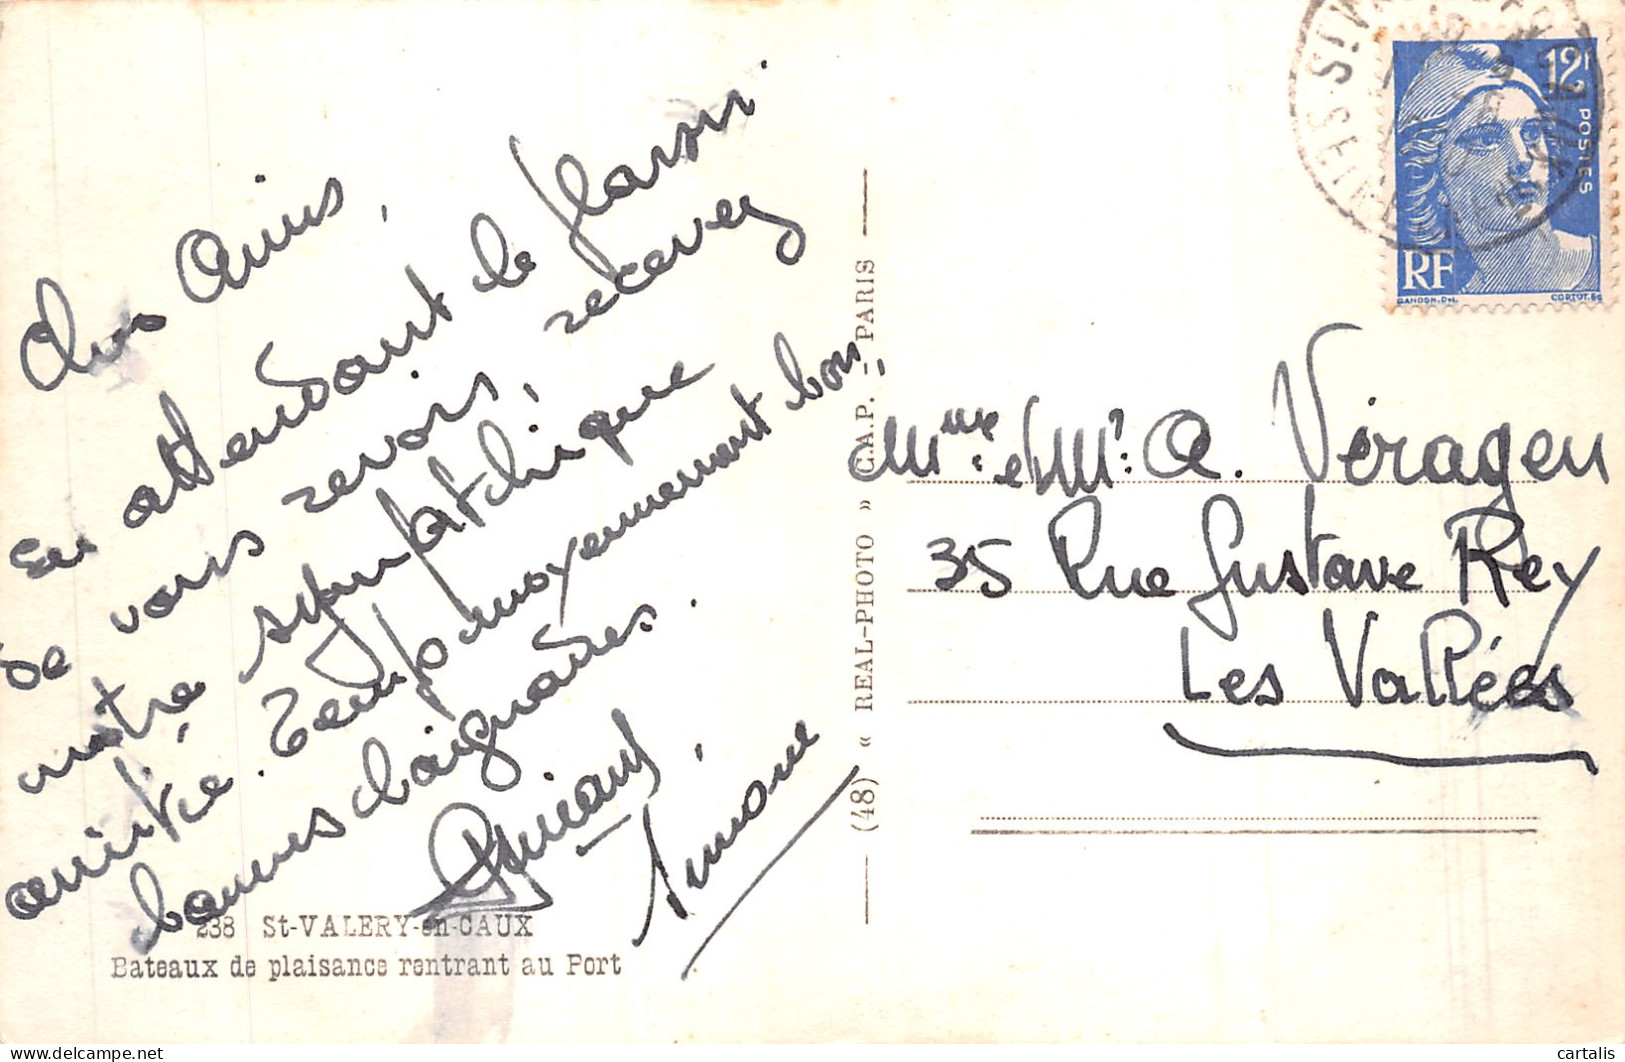 Chers Amis,
En attendant le plaisir
de vous revoir, recevez
notre sympathique
amitié. Temps moyennement bon,
bonnes baignades.
Simone
238 St-VALERY-en-CAUX
Bateaux de plaisance rentrant au Port
(48) « REAL-PHOTO » C.A.P. - PARIS
12F
POSTES
RF
GANDON.Del.
CORTOT.Sc
Mme et Mr: A. Véragen
35 Rue Gustave Rey
Les Vallées
cartalis